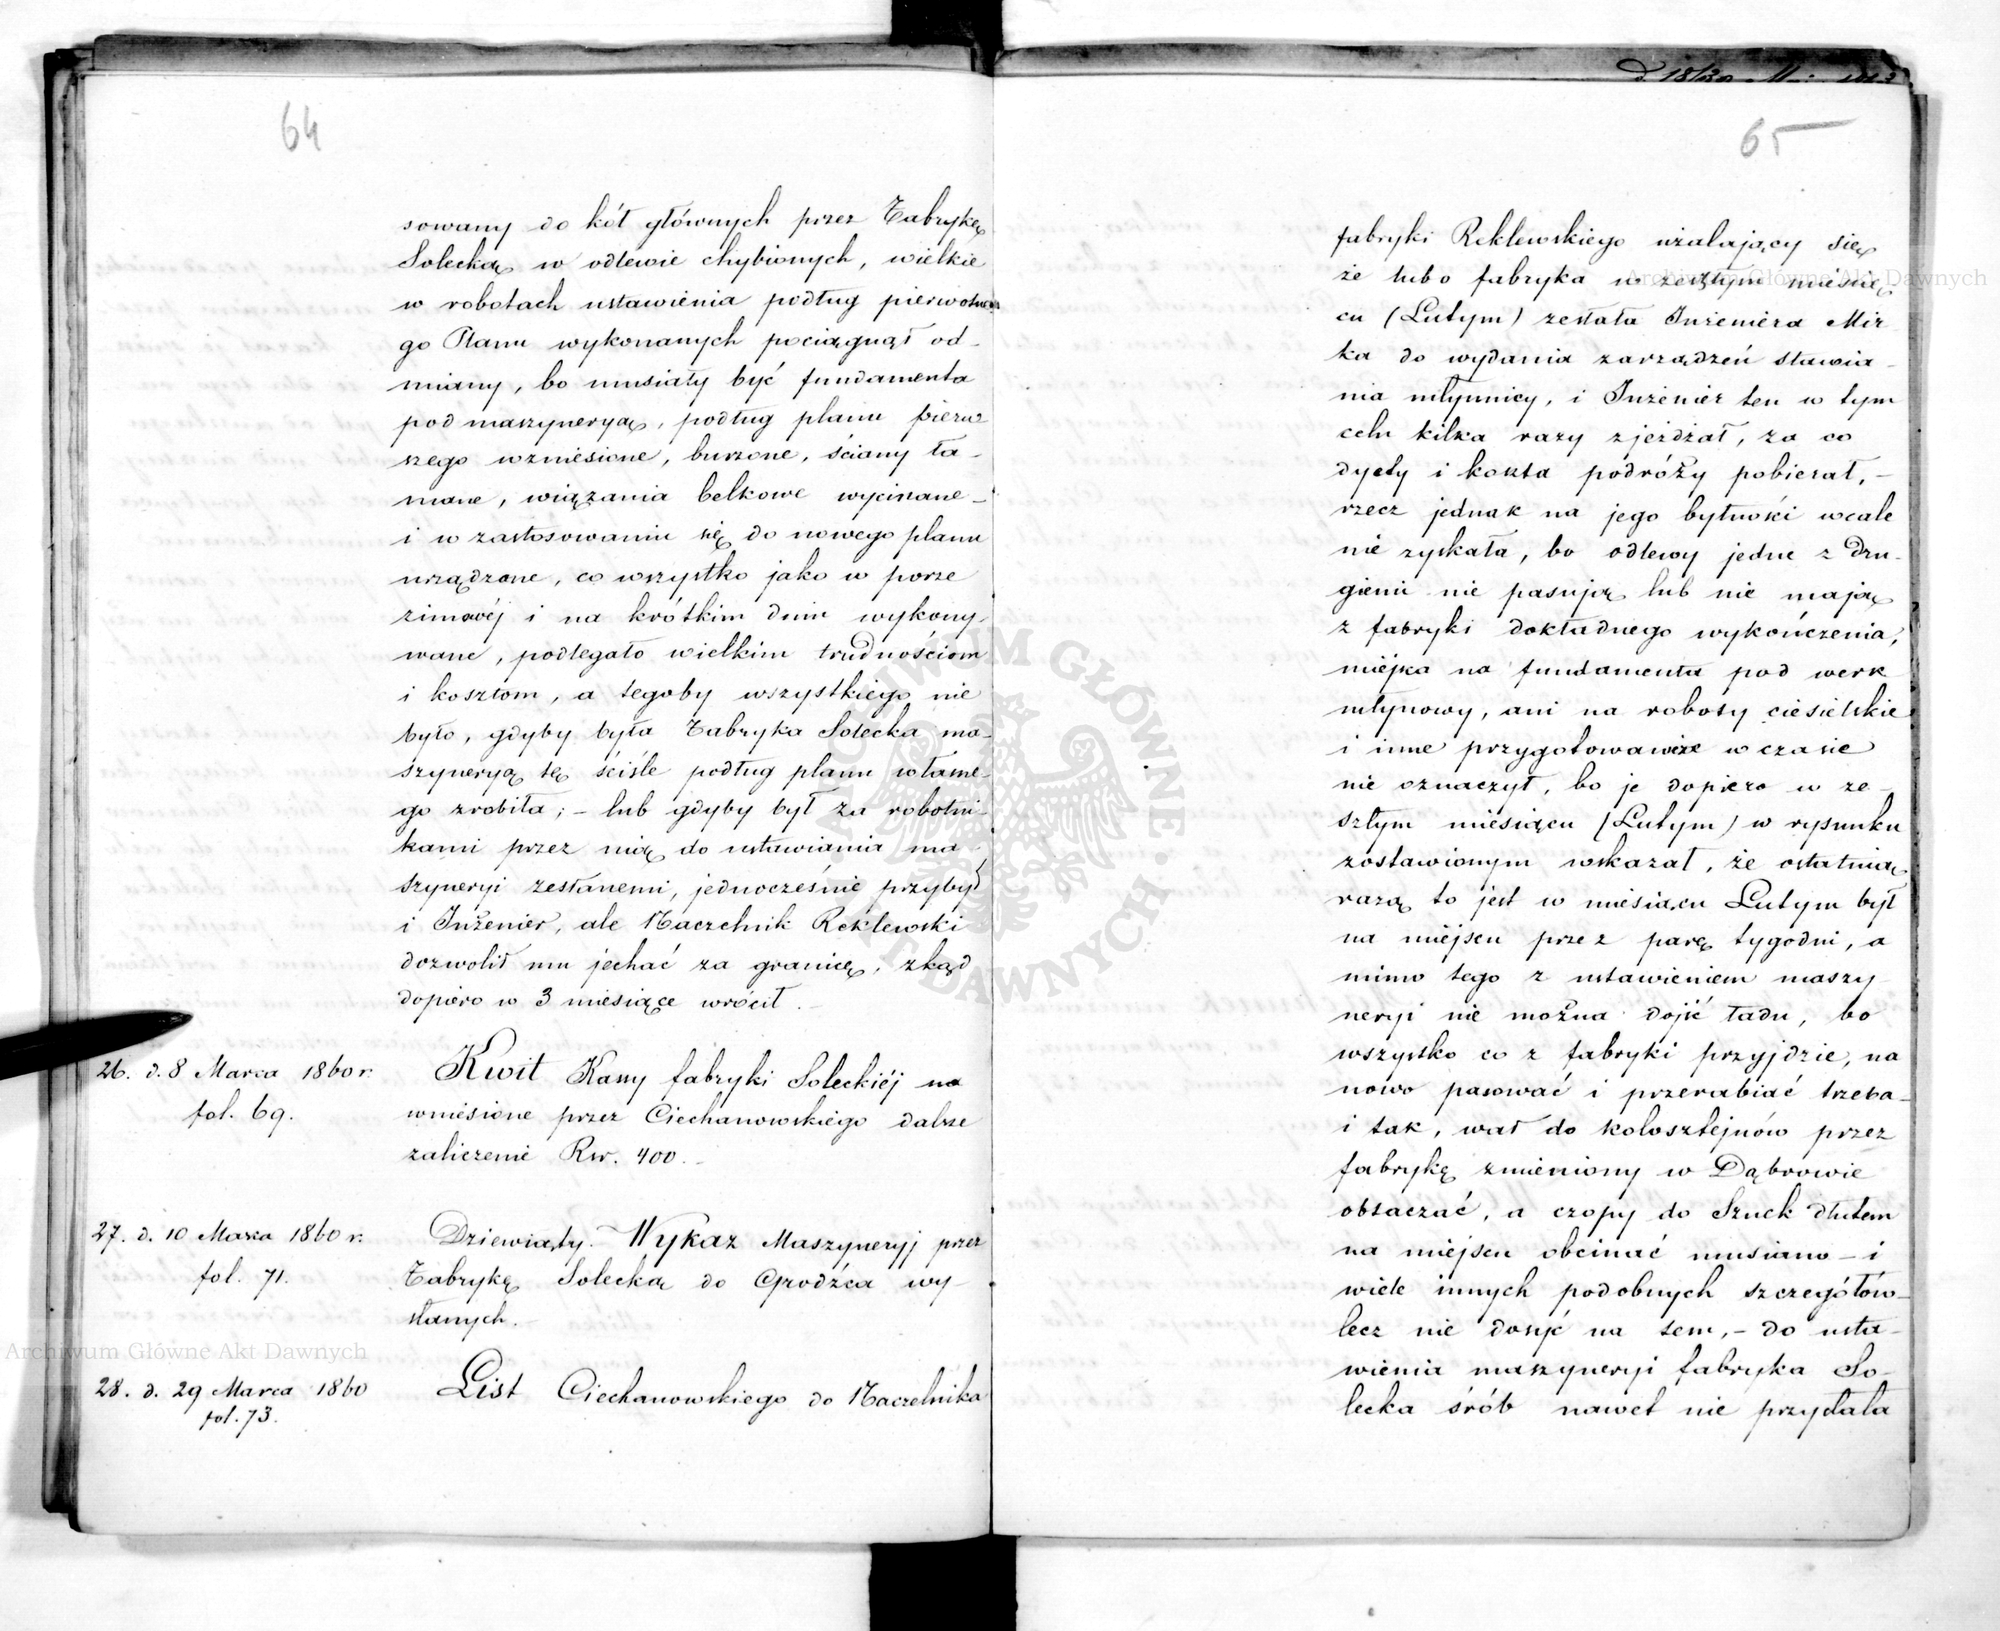 64
sowany do kół głównych przez Fabrykę
Solecką w odlewie chybionych, wielkie
w robotach ustawienia podług pierwotne
go Planu wykonanych pociągnął od-
miany, bo musiały być fundamenta
pod maszyneryą, podług planu pierw
szego wzniesione, burzone, ściany ła-
mane, wiązania belkowe wycinane-
i w zastosowaniu się do nowego planu
urządzone, co wszystko jako w porze
zimowéj i na krótkim dniu wykony-
wane, podlegało wielkim trudnościom
i kosztom, a tegoby wszystkiego nie
było, gdyby była Fabryka Solecka ma-
szyneryą tę ściśle podług planu własne-
go zrobiła; - lub gdyby był za robotni-
kami przez nią do ustawiania ma-
szyneryi zesłanemi, jednocześnie przybył
i Inżenier, ale Naczelnik Reklewski
dozwolił mu jechać za granicę, zkąd
dopiero w 3 miesiące wrócił.-
26. d. 8 Marca 1860 r.
fol. 69.
Kwit Kassy fabryki Soleckiéj na
wniesione przez Ciechanowskiego dalsze
zaliczenie Rsr. 400.-
27. d. 10 Marca 1860 r.
fol. 71.
Dziewiąty. Wykaz Maszyneryj przez
Fabrykę Solecką do Grodźca wy-
słanych.-
28. d. 29 Marca 1860
fol. 73.
List Ciechanowskiego do Naczelnika
65
fabryki Reklewskiego użalający się
że lubo fabryka w zeszłym miesią
cu (Lutym) zesłała Inżeniera Mir
ka do wydania zarządzeń stawia-
nia młynnicy, i Inżenier ten w tym
celu kilka razy zjeżdżał, za co
dyety i koszta podróży pobierał,-
rzecz jednak na jego bytności wcale
nie zyskała, bo odlewy jedne z dru-
giemi nie pasują lub nie mają
z fabryki dokładnego wykończenia,
miejsca na fundamenta pod werk
młynowy, ani na roboty ciesielskie
i inne przygotowawcze w czasie
nie oznaczył, bo je dopiero w ze-
szłym miesiącu (Lutym) w rysunku
zostawionym wskazał, że ostatnią
razą to jest w miesiącu Lutym był
na miejscu przez parę tygodni, a
mimo tego z ustawieniem maszy-
neryi nie można dojść ładu, bo
wszystko co z fabryki przyjdzie, na
nowo pasować i przerabiać trzeba-
i tak, wał do kolosztejnów przez
fabrykę zmieniony w Dąbrowie
obtaczać, a czopy do Sztuck dłutem
na miejscu obcinać musiano - i
wiele innych podobnych szczegółów-
lecz nie dosyć na tem, - do usta-
wienia maszyneryi fabryka So-
lecka śrób nawet nie przysłała
Archiwum Główne Akt Dawnych
Archiwum Główne Akt Dawnych
ARCHIWUM GŁÓWNE AKT DAWNYCH